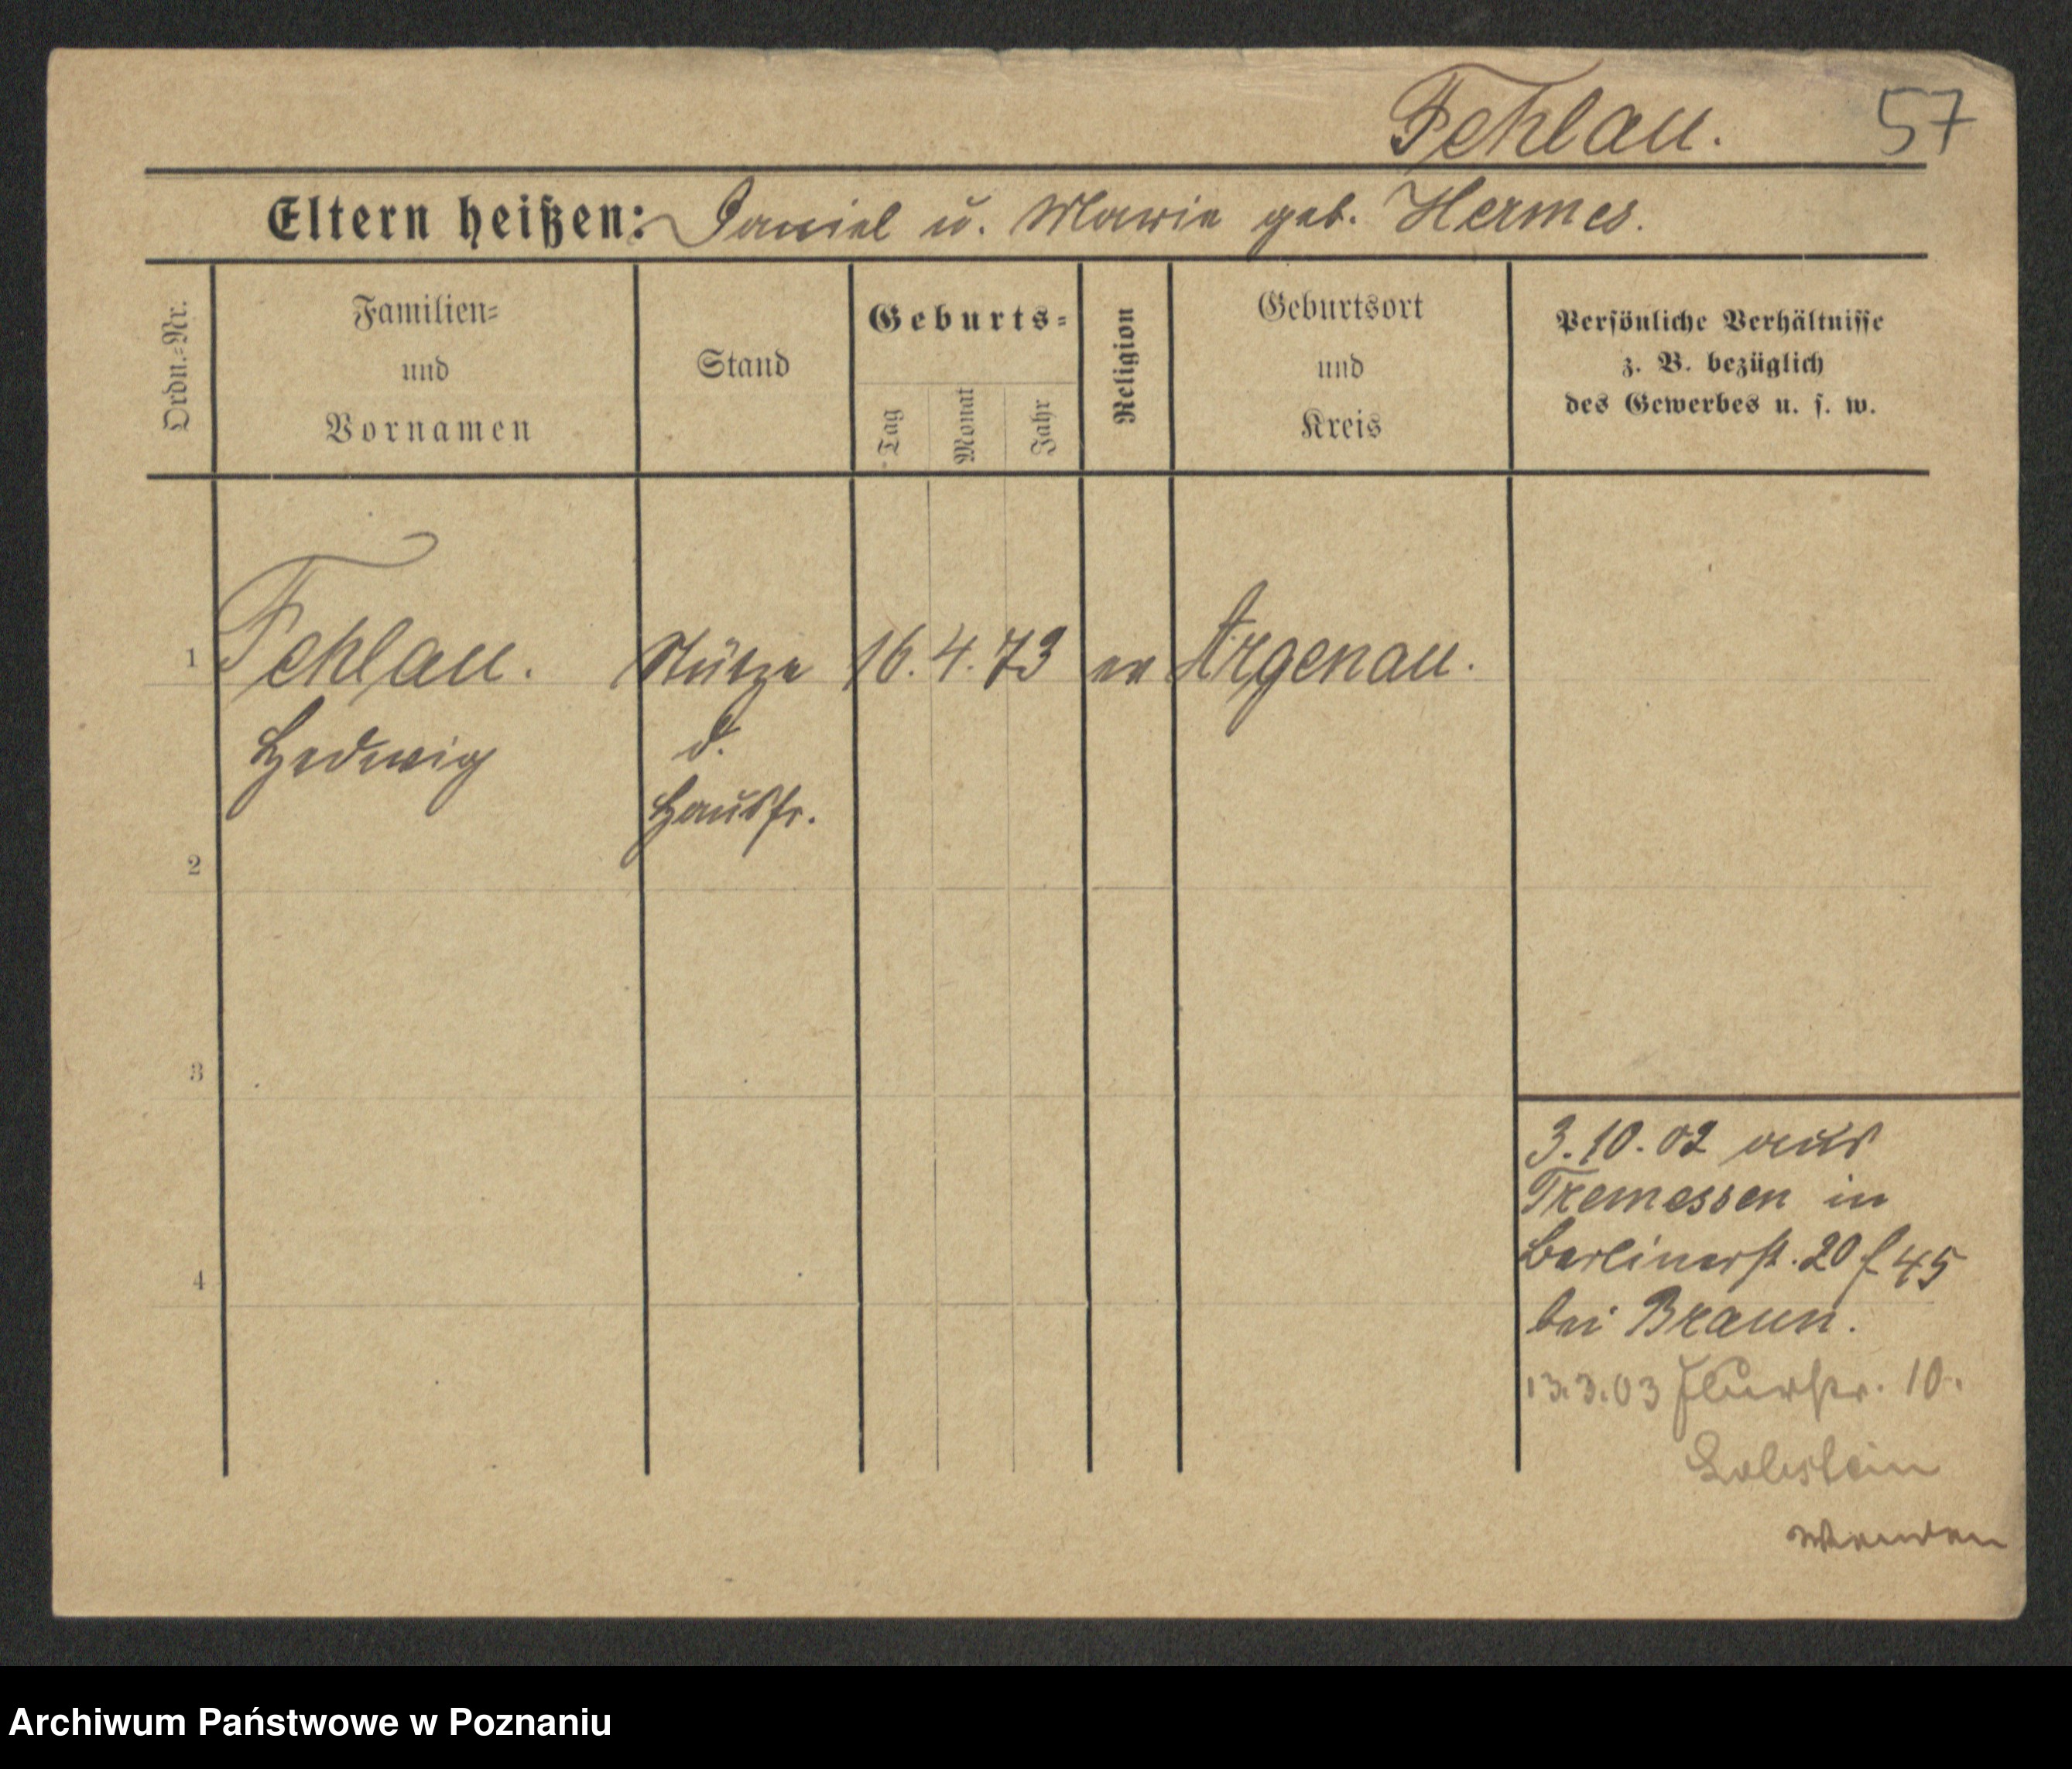 Fehlau. 57
Eltern heißen: Daniel u. Marie geb. Hermes.
Ordn.=Nr.
Familien=
und
Vornamen
Stand
Geburts=
Tag
Monat
Jahr
Religion
Geburtsort
und
Kreis
Persönliche Verhältnisse
z. B. bezüglich
des Gewerbes u. s. w.
1 Fehlau. Stütze 16. 4. 73 ev Argenau.
Hedwig d.
Hausfr.
2
3
3.10.02 aus
Tremessen in
Berlinerst. 20 f 45
4
bei Braun.
13.3.03 Flurstr. 10.
wenden
Archiwum Państwowe w Poznaniu